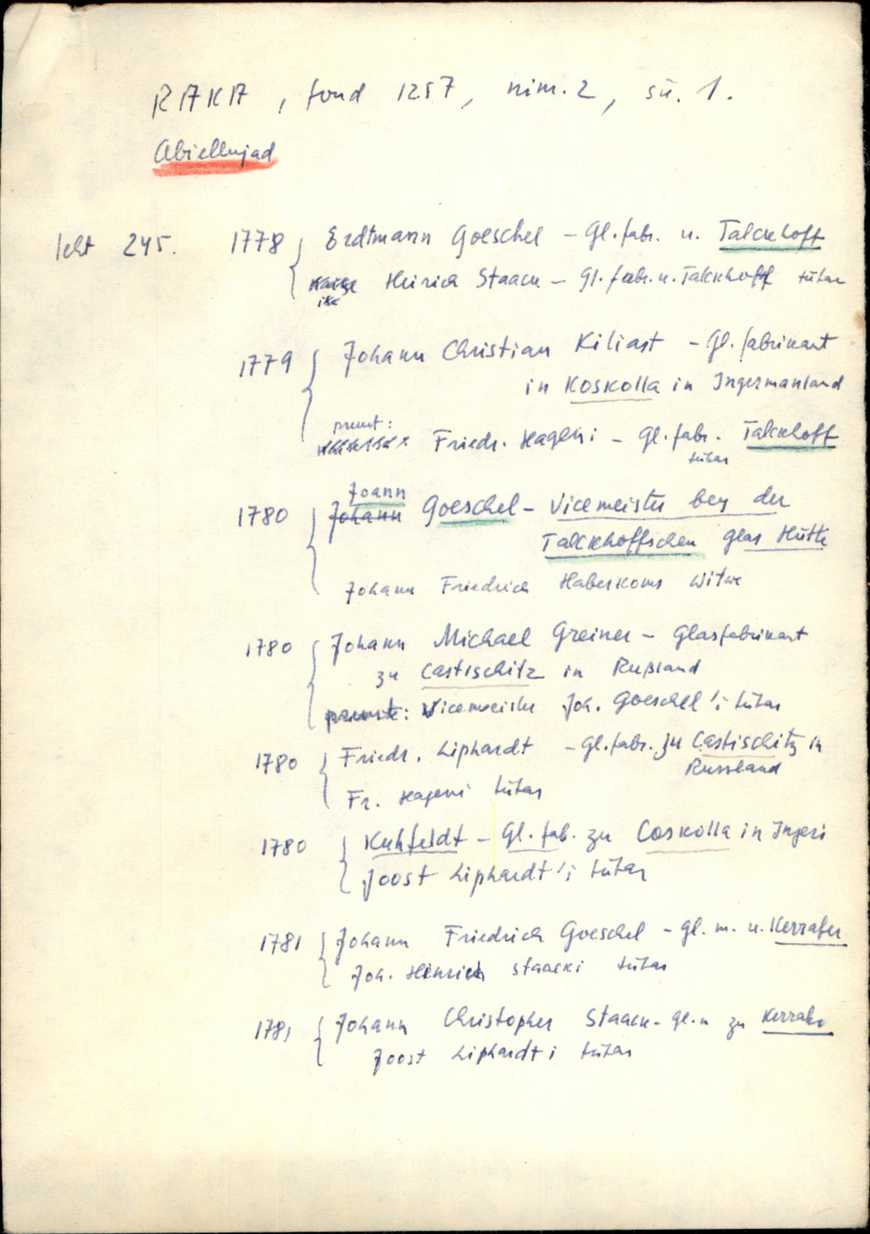 RAKA, fond 1257, nim. 2, sü. 1.
Abiellujad
leht 245. 1778 { Erdtmann Goeschel – Gl. fabr. u. Talckhoff
Heinrich Staack – Gl. fabr. u. Talckhoff tütar
1779 { Johann Christian Kiliast – Gl. fabrikant
in Koskolla in Ingermanland
pruut:
Friedr. Hageni – Gl. fabr. Talckhoff
tütar
Joann
1780 { Johann Goeschel – Vicemeister bey der
Talckhoffschen Glas Hütte
Johann Friedrich Haberkorns Witwe
1780 { Johann Michael Greiner – Glasfabrikant
zu Castischitz in Rußland
pruut: Vicemeister Joh. Goeschel'i tütar
1780 { Friedr. Liphardt – Gl. fabr. zu Castischitz in
Russland
Fr. Hageni tütar
1780 { Kuhfeldt – Gl. fab. zu Coskolla in Ingeri
Joost Liphardt'i tütar
1781 { Johann Friedrich Goeschel – gl. m. u. Kerrafer
Joh. Hinrich Staacki tütar
1781 { Johann Christopher Staack – gl. m zu Kerrafer
Joost Liphardti tütar